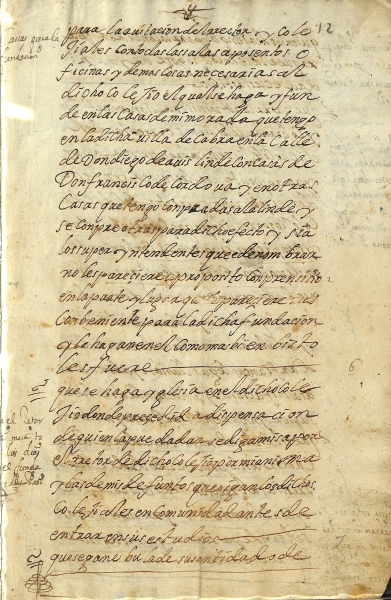 12
Casas para la
fundacion
para la avitacion del rector y cole
jiales con todas las salas aposentos o
ficinas y demas cosas necesarias al
dicho colejio el qual se haga y fun
de en las casas de mi morada que tengo
en la dicha villa de Cabra en la calle
de Don diego de linde con casas de
Don francisco de cordova y en otras
casas que tengo conpradas alli linde y
se conpre otras para dicho efecto y si a
los super yntendentes que de nombrar
no les pareciere a proposito conpren sitio
en la parte y lugar que les pareciere mas
conbeniente para la dicha fundacion
y le hagan en el como mas bien visto
les fuere
que se haga yglesia en el dicho cole
jio donde precedida dispensacion
de quien la pueda dar se diga misa por
el retor de dicho colejio por mi anima
y las demas de funtos que oigan los dichos
colejiales en comunidad antes de
entrar en sus estudios
que se gane bula de su santidad o de